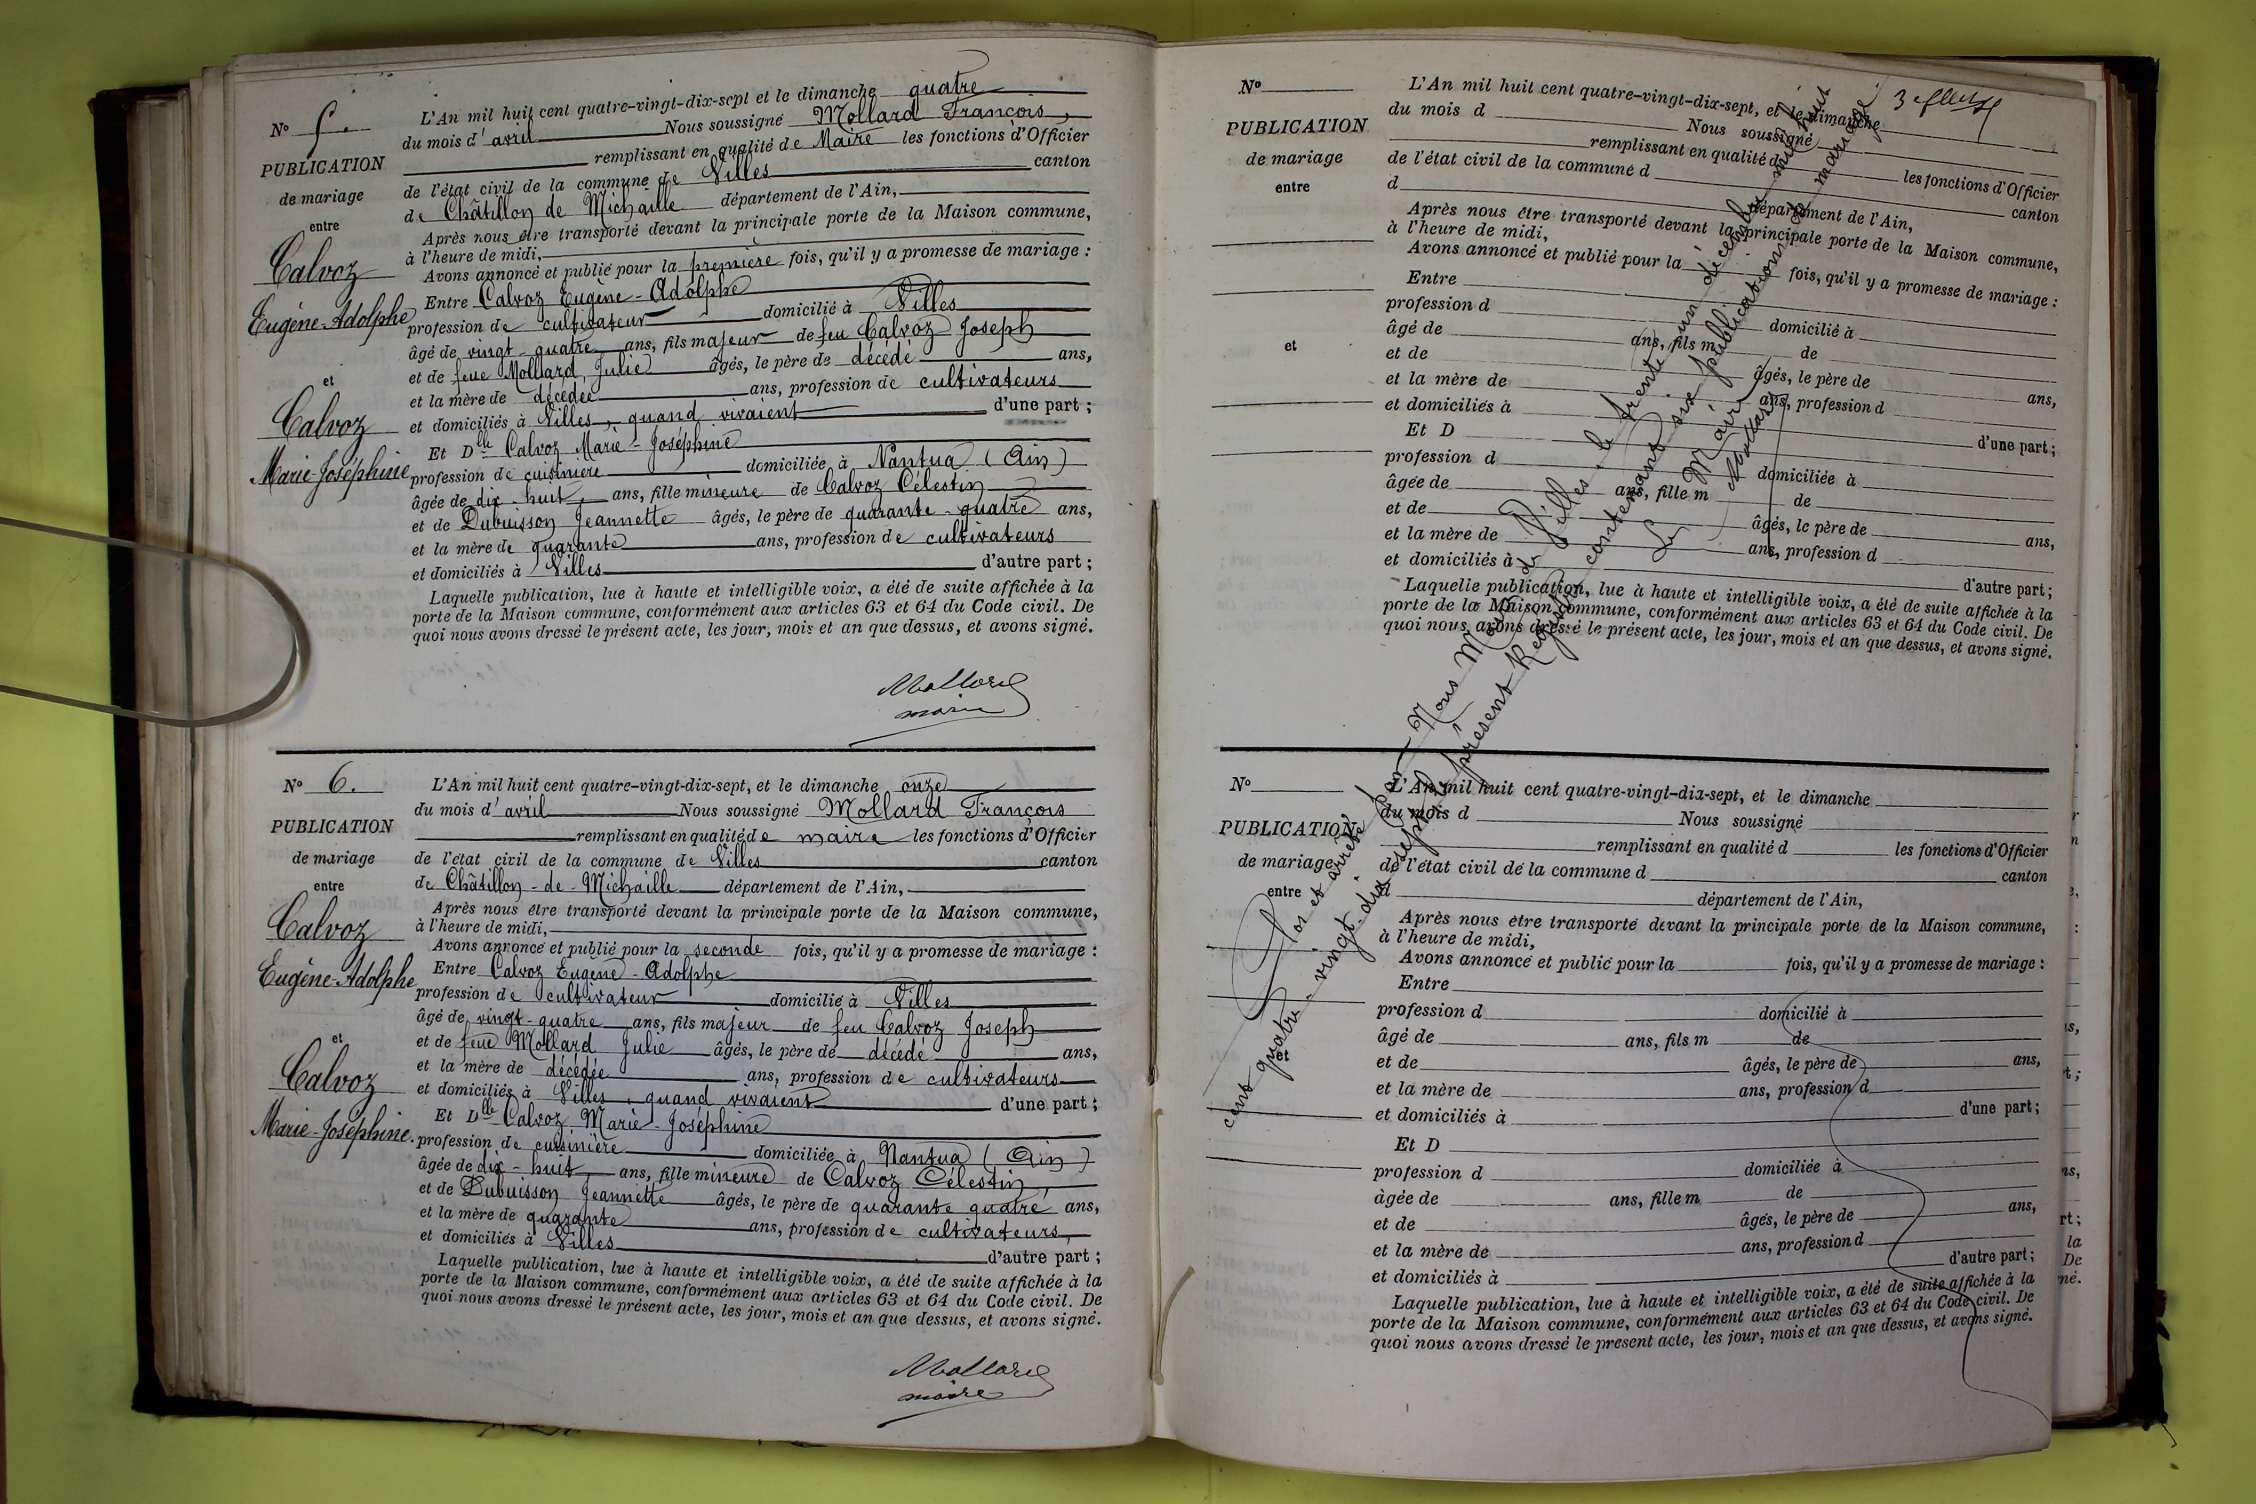 N° 5.
PUBLICATION
de mariage
entre
Calvoz
Eugène-Adolphe
et
Calvoz
Marie-Joséphine
L'An mil huit cent quatre-vingt-dix-sept et le dimanche quatre
du mois d'avril Nous soussigné Mollard François,
remplissant en qualité de Maire les fonctions d'Officier
de l'état civil de la commune de Villes canton
de Châtillon de Michaille département de l'Ain,
Après nous être transporté devant la principale porte de la Maison commune,
à l'heure de midi,
Avons annoncé et publié pour la première fois, qu'il y a promesse de mariage :
Entre Calvoz Eugène-Adolphe
profession de cultivateur domicilié à Villes
âgé de vingt-quatre ans, fils majeur de feu Calvoz Joseph
et de feue Mollard Julie âgés, le père de décédé ans,
et la mère de décédée ans, profession de cultivateurs
et domiciliés à Villes, quand vivaient d'une part ;
Et Dlle Calvoz Marie-Joséphine
profession de cuisinière domiciliée à Nantua (Ain)
âgée de dix-huit, ans, fille mineure de Calvoz Célestin
et de Dubuisson Jeannette âgés, le père de quarante-quatre ans,
et la mère de quarante ans, profession de cultivateurs
et domiciliés à Villes d'autre part ;
Laquelle publication, lue à haute et intelligible voix, a été de suite affichée à la
porte de la Maison commune, conformément aux articles 63 et 64 du Code civil. De
quoi nous avons dressé le présent acte, les jour, mois et an que dessus, et avons signé.
Mollard
maire
N° 6.
PUBLICATION
de mariage
entre
Calvoz
Eugène-Adolphe
et
Calvoz
Marie-Joséphine.
L'An mil huit cent quatre-vingt-dix-sept, et le dimanche onze
du mois d'avril Nous soussigné Mollard François
remplissant en qualité de maire les fonctions d'Officier
de l'état civil de la commune de Villes canton
de Châtillon-de-Michaille département de l'Ain,
Après nous être transporté devant la principale porte de la Maison commune,
à l'heure de midi,
Avons annoncé et publié pour la seconde fois, qu'il y a promesse de mariage :
Entre Calvoz Eugène-Adolphe
profession de cultivateur domicilié à Villes
âgé de vingt-quatre ans, fils majeur de feu Calvoz Joseph
et de feue Mollard Julie âgés, le père de décédé ans,
et la mère de décédée ans, profession de cultivateurs
et domiciliés à Villes, quand vivaient d'une part ;
Et Dlle Calvoz Marie-Joséphine
profession de cuisinière domiciliée à Nantua (Ain)
âgée de dix-huit, ans, fille mineure de Calvoz Célestin,
et de Dubuisson Jeannette âgés, le père de quarante quatre ans,
et la mère de quarante ans, profession de cultivateurs,
et domiciliés à Villes d'autre part ;
Laquelle publication, lue à haute et intelligible voix, a été de suite affichée à la
porte de la Maison commune, conformément aux articles 63 et 64 du Code civil. De
quoi nous avons dressé le présent acte, les jour, mois et an que dessus, et avons signé.
Mollard
maire
N°
PUBLICATION
de mariage
entre
et
L'An mil huit cent quatre-vingt-dix-sept, et le dimanche
du mois d Nous soussigné
remplissant en qualité d les fonctions d'Officier
de l'état civil de la commune d canton
d département de l'Ain,
Après nous être transporté devant la principale porte de la Maison commune,
à l'heure de midi,
Avons annoncé et publié pour la fois, qu'il y a promesse de mariage :
Entre
profession d domicilié à
âgé de ans, fils m de
et de âgés, le père de ans,
et la mère de ans, profession d
et domiciliés à d'une part ;
Et D
profession d domiciliée à
âgée de ans, fille m de
et de âgés, le père de ans,
et la mère de ans, profession d
et domiciliés à d'autre part ;
Laquelle publication, lue à haute et intelligible voix, a été de suite affichée à la
porte de la Maison commune, conformément aux articles 63 et 64 du Code civil. De
quoi nous avons dressé le présent acte, les jour, mois et an que dessus, et avons signé.
N°
PUBLICATION
de mariage
entre
et
L'An mil huit cent quatre-vingt-dix-sept, et le dimanche
du mois d Nous soussigné
remplissant en qualité d les fonctions d'Officier
de l'état civil de la commune d canton
d département de l'Ain,
Après nous être transporté devant la principale porte de la Maison commune,
à l'heure de midi,
Avons annoncé et publié pour la fois, qu'il y a promesse de mariage :
Entre
profession d domicilié à
âgé de ans, fils m de
et de âgés, le père de ans,
et la mère de ans, profession d
et domiciliés à d'une part ;
Et D
profession d domiciliée à
âgée de ans, fille m de
et de âgés, le père de ans,
et la mère de ans, profession d
et domiciliés à d'autre part ;
Laquelle publication, lue à haute et intelligible voix, a été de suite affichée à la
porte de la Maison commune, conformément aux articles 63 et 64 du Code civil. De
quoi nous avons dressé le présent acte, les jour, mois et an que dessus, et avons signé.
Clos et arrêté par Nous Maire de Villes, le trente un décembre mil huit
cent quatre-vingt-dix-sept le présent Registre contenant six publications de mariage
Le Maire
Mollard